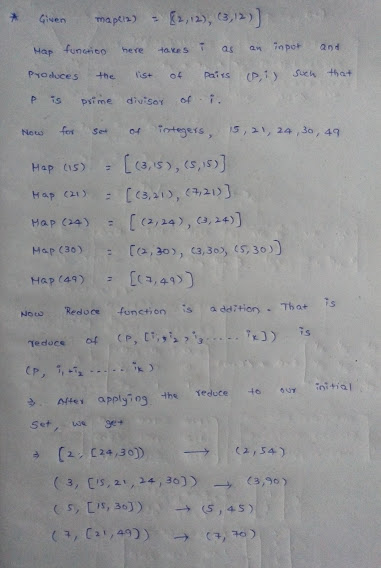 * Given map(12) = [(2,12), (3,12)]
Map function here takes i as an input and
Produces the list of Pairs (P,i) such that
P is prime divisor of i.
Now for set of integers, 15, 21, 24, 30, 49
Map (15) = [(3,15), (5,15)]
Map (21) = [(3,21), (7,21)]
Map (24) = [(2,24), (3,24)]
Map (30) = [(2,30), (3,30), (5,30)]
Map (49) = [(7,49)]
Now Reduce function is addition. That is
reduce of (P, [i1, i2, i3 ..... ik]) is
(P, i1+i2 ..... ik)
→ After applying the reduce to our initial
Set, we get
→ (2, [24,30]) → (2,54)
(3, [15,21,24,30]) → (3,90)
(5, [15,30]) → (5,45)
(7, [21,49]) → (7,70)